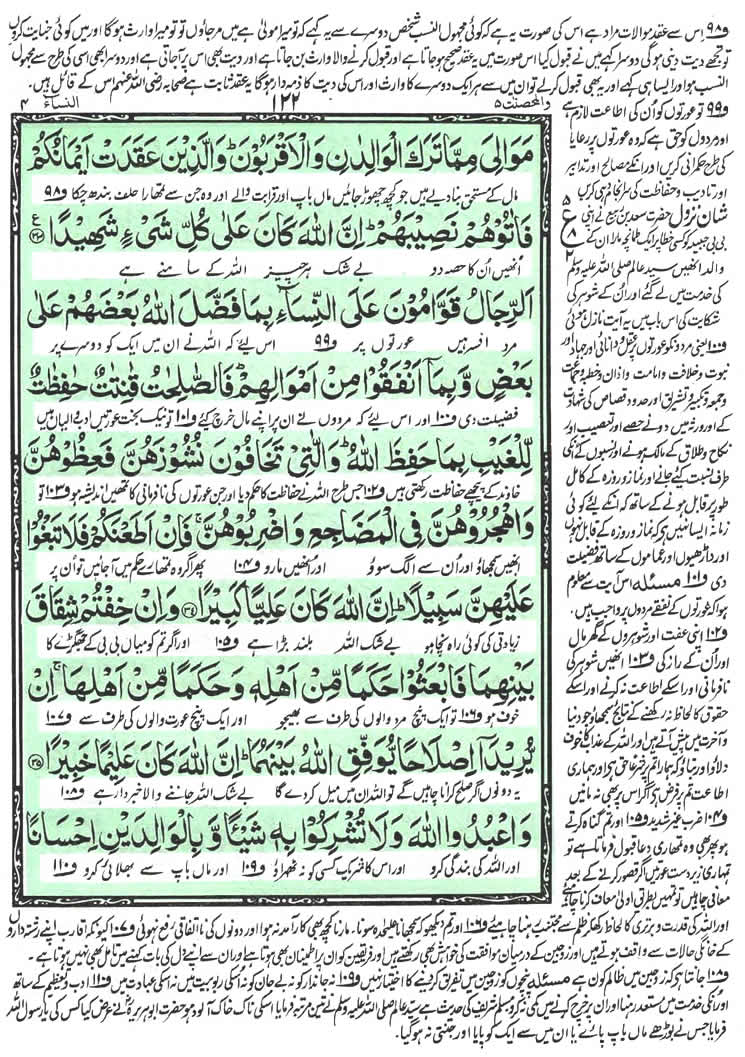 و۹۸ اس سے عقد موالات مراد ہے اس کی صورت یہ ہے کہ کوئی مجہول النسب شخص دوسرے سے یہ کہے کہ تو میرا مولیٰ ہے میں مر جاؤں تو تو میرا وارث ہوگا اور میں کوئی جنایت کروں
تو تجھے دیت دینی ہوگی دوسرا کہے میں نے قبول کیا اس صورت میں یہ عقد صحیح ہو جاتا ہے اور قبول کرنے والا وارث بن جاتا ہے اور دیت بھی اس پر آجاتی ہے اور دوسرا بھی اسی کی طرح سے مجہول
النسب ہو اور ایسا ہی کہے اور یہ بھی قبول کر لے تو ان میں سے ہر ایک دوسرے کا وارث اور اس کی دیت کا ذمہ دار ہوگا یہ عقد ثابت ہے صحابہ رضی اللہ عنہم اس کے قائل ہیں۔
والمحصنت ۵
۱۲۲
النساء ۴
مَوَالِيَ مِمَّا تَرَكَ الْوَالِدٰنِ وَالْاَقْرَبُوْنَ ؕ وَالَّذِيْنَ عَقَدَتْ اَيْمَانُكُمْ
مال کے مستحق بنا دیے ہیں جو کچھ چھوڑ جائیں ماں باپ اور قرابت والے اور وہ جن سے تمہارا حلف بندھ چکا و۹۸
فَاٰتُوْهُمْ نَصِيْبَهُمْ ؕ اِنَّ اللّٰهَ كَانَ عَلٰى كُلِّ شَيْءٍ شَهِيْدًا
انھیں اُن کا حصہ دو بے شک ہر چیز اللہ کے سامنے ہے
اَلرِّجَالُ قَوّٰمُوْنَ عَلَى النِّسَآءِ بِمَا فَضَّلَ اللّٰهُ بَعْضَهُمْ عَلٰى
مرد افسر ہیں عورتوں پر و۹۹ اس لیے کہ اللہ نے ان میں ایک کو دوسرے پر
بَعْضٍ وَّبِمَآ اَنْفَقُوْا مِنْ اَمْوَالِهِمْ ؕ فَالصّٰلِحٰتُ قٰنِتٰتٌ حٰفِظٰتٌ
فضیلت دی و۱۰۰ اور اس لیے کہ مردوں نے ان پر اپنے مال خرچ کیے و۱۰۱ تو نیک بخت عورتیں ادب والیاں ہیں
لِّلْغَيْبِ بِمَا حَفِظَ اللّٰهُ ؕ وَالّٰتِيْ تَخَافُوْنَ نُشُوْزَهُنَّ فَعِظُوْهُنَّ
خاوند کے پیچھے حفاظت رکھتی ہیں و۱۰۲ جس طرح اللہ نے حفاظت کا حکم دیا اور جن عورتوں کی نافرمانی کا تمھیں اندیشہ ہو و۱۰۳ تو
وَاهْجُرُوْهُنَّ فِي الْمَضَاجِعِ وَاضْرِبُوْهُنَّ ۚ فَاِنْ اَطَعْنَكُمْ فَلَا تَبْغُوْا
انھیں سمجھاؤ اور اُن سے الگ سوؤ اور انھیں مارو و۱۰۴ پھر اگر وہ تمھارے حکم میں آجائیں تو اُن پر
عَلَيْهِنَّ سَبِيْلًا ؕ اِنَّ اللّٰهَ كَانَ عَلِيًّا كَبِيْرًا وَاِنْ خِفْتُمْ شِقَاقَ
زیادتی کی کوئی راہ نہ چاہو بے شک اللہ بلند بڑا ہے و۱۰۵ اور اگر تم کو میاں بی بی کے جھگڑے کا
بَيْنِهِمَا فَابْعَثُوْا حَكَمًا مِّنْ اَهْلِهٖ وَحَكَمًا مِّنْ اَهْلِهَا ۚ اِنْ
خوف ہو و۱۰۶ تو ایک پنچ مرد والوں کی طرف سے بھیجو اور ایک پنچ عورت والوں کی طرف سے و۱۰۷
يُّرِيْدَآ اِصْلَاحًا يُّوَفِّقِ اللّٰهُ بَيْنَهُمَا ؕ اِنَّ اللّٰهَ كَانَ عَلِيْمًا خَبِيْرًا ۳۵
یہ دونوں اگر صلح کرانا چاہیں گے تو اللہ ان میں میل کر دے گا بے شک اللہ جاننے والا خبردار ہے و۱۰۸
وَاعْبُدُوا اللّٰهَ وَلَا تُشْرِكُوْا بِهٖ شَيْـًٔا وَّبِالْوَالِدَيْنِ اِحْسَانًا
اور اللہ کی بندگی کرو اور اس کا شریک کسی کو نہ ٹھہراؤ و۱۰۹ اور ماں باپ سے بھلائی کرو و۱۱۰
و۹۹ تو عورتوں کو اُن کی اطاعت لازم ہے
اور مردوں کو حق ہے کہ وہ عورتوں پر رعایا
کی طرح حکمرانی کریں اور انکے مصالح اور تدابیر
اور تادیب و حفاظت کی سرانجام دہی کریں
شان نزول حضرت سعد بن ربیع نے اپنی
بی بی حبیبہ کو کسی خطا پر ایک طمانچہ مارا ان کے
والد انھیں سید عالم صلی اللہ علیہ وسلم
کی خدمت میں لے گئے اور اُن کے شوہر کی
شکایت کی اس باب میں یہ آیت نازل ہوئی
و۱۰۰ یعنی مردوں کو عورتوں پر عقل و دانائی اور جہاد اور
نبوت و خلافت و امامت و اذان و خطبہ و جماعت
و جمعہ و تکبیر و تشریق اور حدود و قصاص کی شہادت
کے اور ورثہ میں دونے حصے اور تعصیب اور
نکاح و طلاق کے مالک ہونے اور نسبوں کے انکی
طرف نسبت کیے جانے اور نماز و روزہ کے کامل
طور پر قابل ہونے کے ساتھ کہ انکے لیے کوئی
زمانہ ایسا نہیں کہ نماز و روزہ کے قابل نہ ہوں
اور داڑھیوں اور عماموں کے ساتھ فضیلت
دی و۱۰۱ مسئلہ اس آیت سے معلوم
ہوا کہ عورتوں کے نفقے مردوں پر واجب ہیں۔
و۱۰۲ اپنی عفت اور شوہروں کے گھر مال
اور اُن کے راز کی و۱۰۳ انھیں شوہر کی
نافرمانی اور اسکے اطاعت نہ کرنے اور اسکے
حقوق کا لحاظ نہ رکھنے کے نتائج سمجھاؤ جو دنیا
و آخرت میں پیش آتے ہیں اور اللہ کے عذاب کا خوف
دلاؤ اور بتاؤ کہ ہمارا تم پر شرعاً حق ہے اور ہماری
اطاعت تم پر فرض ہے اگر اس پر بھی نہ مانیں
و۱۰۴ ضرب غیر شدید و۱۰۵ اور تم گناہ کرتے
ہو پھر بھی وہ تمھاری دعا قبول فرماتا ہے تو
تمہاری زیردست عورتیں اگر قصور کرنے کے بعد
معافی چاہیں تو تمہیں بطریق اولیٰ معاف کرنا چاہئے
اور اللہ کی قدرت و برتری کا لحاظ رکھ کر ظلم سے مجتنب رہنا چاہیے و۱۰۶ اور تم دیکھو کہ سمجھانا علیحدہ سونا۔ مارنا کچھ بھی کارآمد نہ ہوا اور دونوں کی نااتفاقی رفع نہ ہوئی و۱۰۷ کیونکہ اقارب اپنے رشتہ داروں
کے خانگی حالات سے واقف ہوتے ہیں اور زوجین کے درمیان موافقت کی خواہش بھی رکھتے ہیں اور فریقین کو ان پر اطمینان بھی ہوتا ہے اور ان سے اپنے دل کی بات کہنے میں تامل بھی نہیں ہوتا ہے۔
و۱۰۸ جانتا ہے کہ زوجین میں ظالم کون ہے مسئلہ پنچوں کو زوجین میں تفریق کر دینے کا اختیار نہیں و۱۰۹ نہ جاندار کو نہ بے جان کو نہ اسکی ربوبیت میں نہ اسکی عبادت میں و۱۱۰ ادب و تعظیم کے ساتھ
اور انکی خدمت میں مستعد رہنا اور ان پر خرچ کرنے میں کمی نہ کرو مسلم شریف کی حدیث ہے سید عالم صلی اللہ علیہ وسلم نے تین مرتبہ فرمایا اسکی ناک خاک آلود ہو حضرت ابوہریرہ نے عرض کیا کس کی یا رسول اللہ
فرمایا جس نے بوڑھے ماں باپ پائے یا ان میں سے ایک کو پایا اور جنتی نہ ہو گیا۔